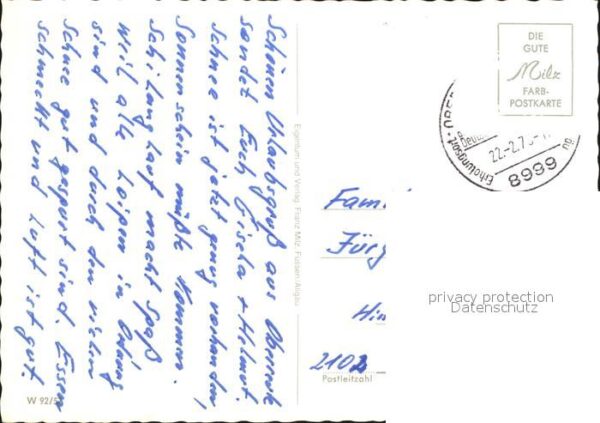 Schönen Urlaubsgruß aus Oberreute
sendet Euch Gisela + Helmut.
Schnee ist jetzt genug vorhanden,
Sonnenschein müßte kommen.
Schilanglauf macht Spaß
weil alle Loipen in Ordnung
sind und durch den vielen
Schnee gut gespurt sind. Essen
schmeckt und Luft ist gut.
W 92/5
Eigentum und Verlag Franz Milz, Füssen/Allgäu
DIE
GUTE
Milz
FARB-
POSTKARTE
22.-2.7
8999
Erholungsort
Fami
Jürg
Hin
2102
Postleitzahl
privacy protection
Datenschutz